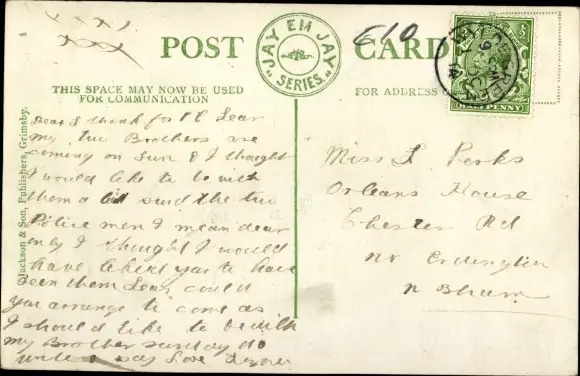 £10
POST CARD
JAY EM JAY SERIES.
THIS SPACE MAY NOW BE USED
FOR COMMUNICATION
FOR ADDRESS O
HALFPENNY
Jackson & Son, Publishers, Grimsby.
Dear L thank for P C Dear
my two Brothers are
coming on Sun & I thought
I would like to be with
them a bit said the two
Police men I mean dear
only I thought I would
have liked you to have
seen them Dear could
you arrange to come as
I should like to be with
my Brother sunday do
write
Love
Miss L Perks
Orleans House
Chester Rd
Nr Erdington
N Bham